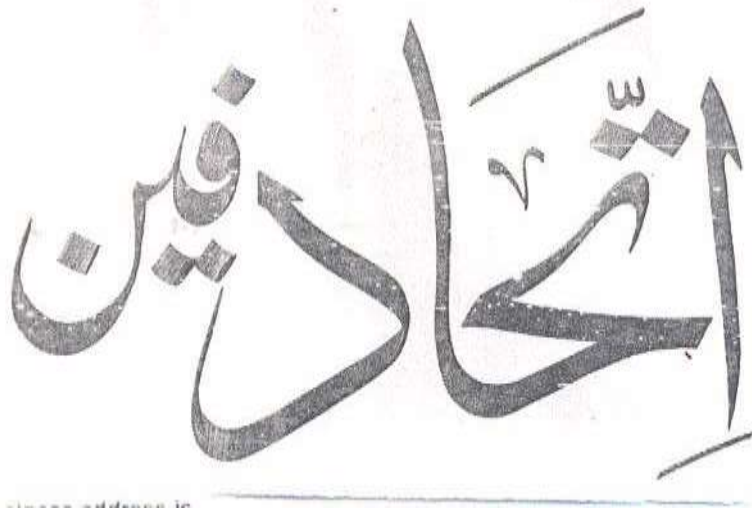 اِتّحَاد فین
address is